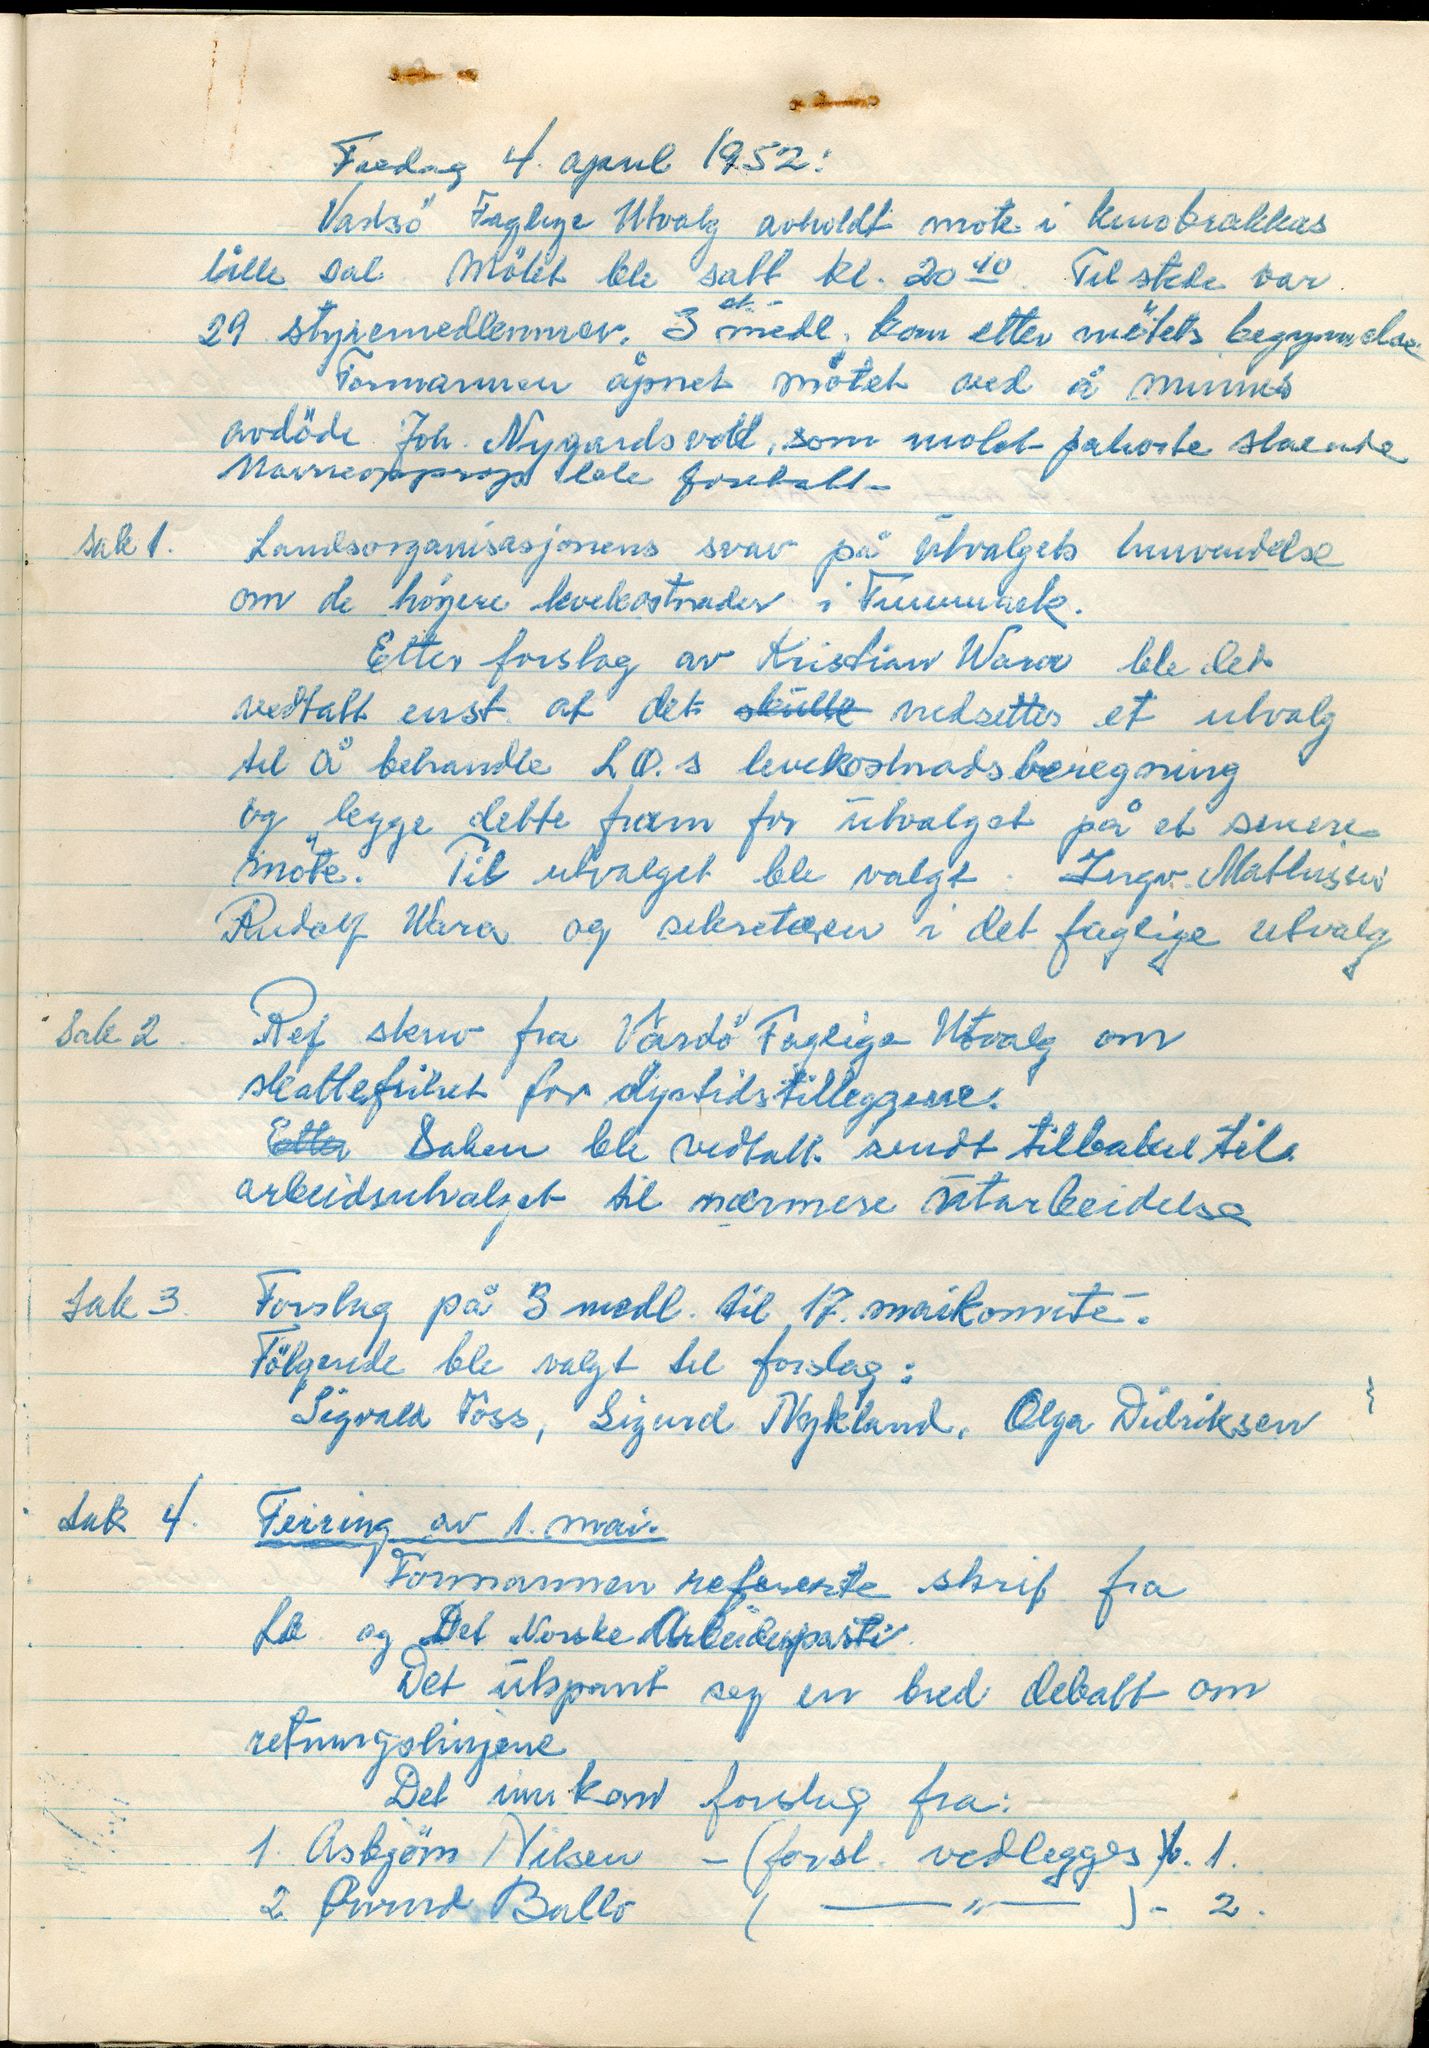 Fredag 4. april 1952:
Vadsö Faglige Utvalg avholdt møte i kinobrakkas
lille sal. Mötet ble satt kl. 20 40. Til stede var
29 styremedlemmer. 3 medl. kom etter mötets begynnelse.
Formannen åpnet mötet ved å minnes
avdöde Joh. Nygardsvold, som mötet påhørte stående
Navneopprop ble foretatt-
Sak 1. Landsorganisasjonens svar på utvalgets henvendelse
om de höyere levekostnader i Finnmark.
Etter forslag av Kristian Wara ble det
vedtatt enst. at det skulle nedsettes et utvalg
til å behandle L.O.s levekostnadsberegning
og legge dette fram for utvalget på et senere
möte. Til utvalget ble valgt. Ingv. Mathisen
Rudolf Wara og sekretæren i det faglige utvalg
Sak 2. Ref skriv fra Vardö Faglige Utvalg om
skattefrihet for dyrtidstilleggene.
Etter Saken ble vedtatt sendt tilbake til
arbeidsutvalget til nærmere utarbeidelse
Sak 3. Forslag på 3 medl. til 17. maikomité.
Fölgende ble valgt til forslag:
Sigvald Foss, Sigurd Nykland, Olga Didriksen
Sak 4. Feiring av 1. mai.
Formannen refererte skrif fra
LO og Det Norske Arbeiderparti.
Det utspant seg en bred debatt om
retningslinjene
Det innkom forslag fra:
1. Asbjörn Nilsen - (forsl. vedlegges) 1.
2. Øivind Ballo ( —„— ) - 2.